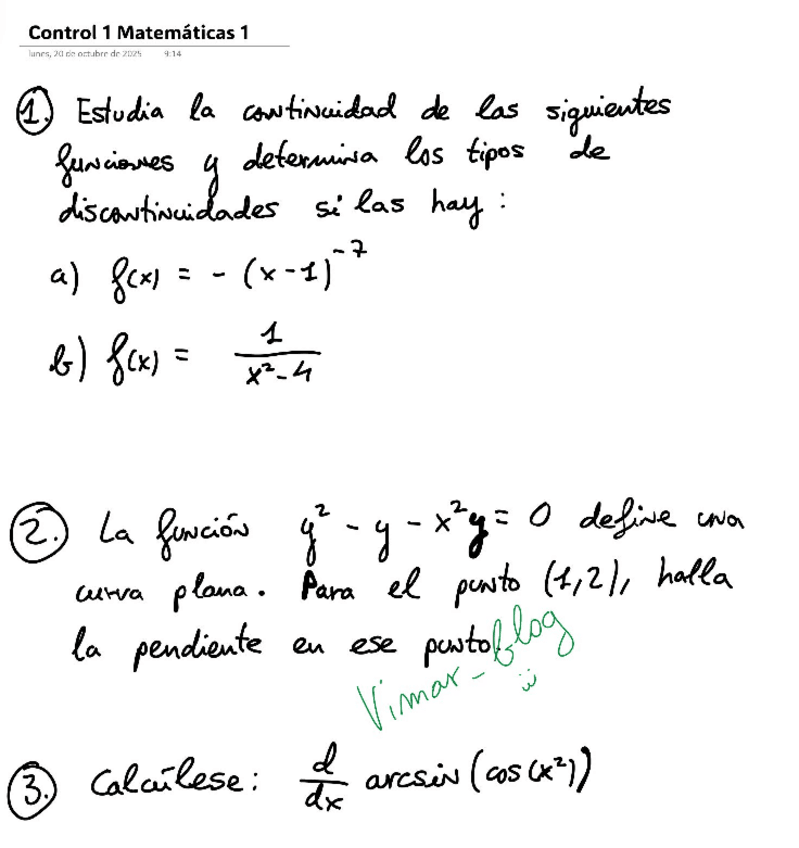 Control 1 Matemáticas 1
lunes, 20 de octubre de 2025 9:14
1. Estudia la continuidad de las siguientes
funciones y determina los tipos de
discontinuidades si las hay:
a) f(x) = - (x-1)^-7
b) f(x) = 1/(x²-4)
2. La función y² - y - x²y = 0 define una
curva plana. Para el punto (1,2), halla
la pendiente en ese punto.
Vimar-blog
3. Calcúlese: d/dx arcsin(cos(x²))